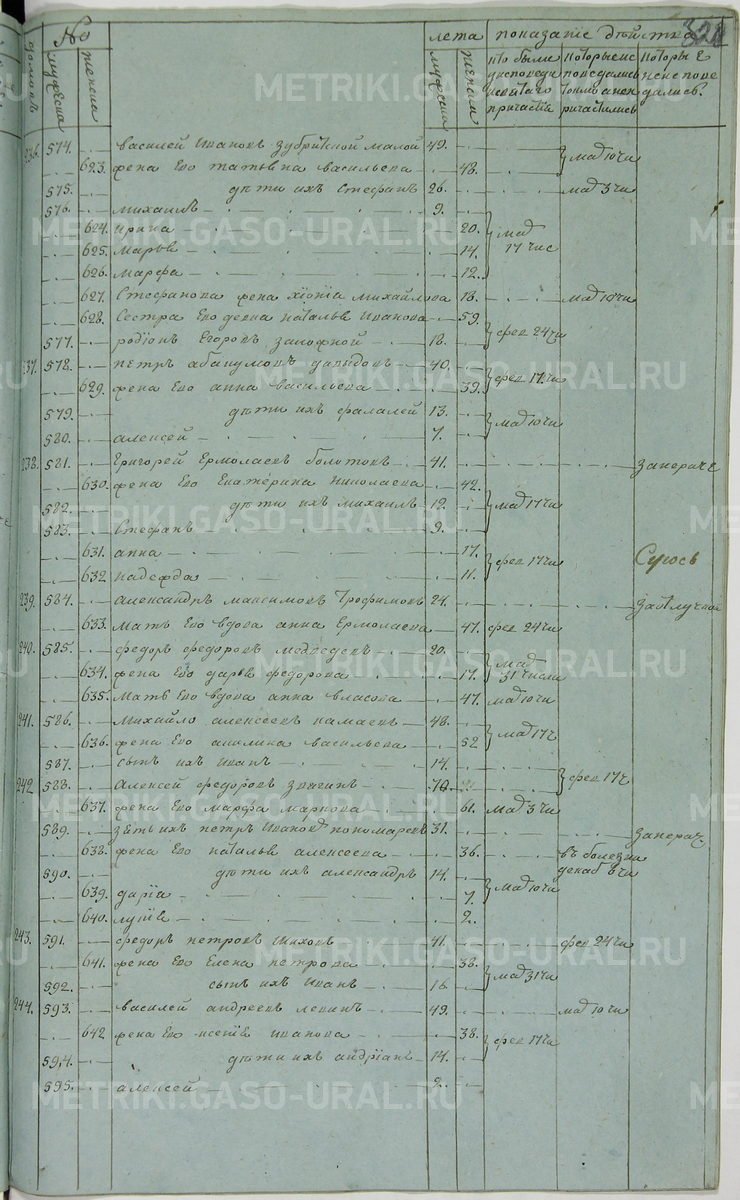 № лета показанiе дѣйства 322
домовъ мужеска женска мужеска женска кто были исповеди исвятаго причастiя которые исповедались токмо анепричастились которые неисповедались.
236. 574. василей Ивановъ зубрицкой малой 49.
623. жена Его татьяна васильева 48. мая 10 чи
575. дѣти ихъ Стефанъ 26. мая 3 чи
576. михаилъ 9.
624. ирина 20. мая
625. марья 14. 17 чис
626. марфа 12.
627. Стефанова жена хiонiа михайлова 18. мая 10 чи
628. Сестра Его девка наталья Иванова 59.
577. родiонъ Егоровъ 18. фев 24 чи
237. 578. петръ абакумовъ давыдовъ 40.
629. жена Его анна васильева 39. фев 17 чи
579. дѣти ихъ фалалей 13.
580. алексей 7. мая 10 чи
238. 581. Григорей Ермолаевъ болотовъ 41.
630. жена Его Екатерина Николаева 42.
582. дѣти ихъ михаилъ 12. мая 17 чи
583. Стефанъ 9.
631. анна 17. фев 17 чи
632 надежда 11.
239. 584. александръ максимовъ трофимовъ 24.
633. мать Его вдова анна Ермолаева 47. фев 24 чи
240. 585. федоръ федоровъ медведевъ 20. мая
634. жена Его дарья федорова 17. 31 числа
635. мать Его вдова анна власова 47. мая 10 чи
241. 586. михайло алексеевъ мамаевъ 48.
636. жена Его акилина васильева 52 мая 17 ч
587. сынъ ихъ Иванъ 14.
242 588. алексей федоровъ 70. фев 17 ч
637. жена Его марфа маркова 61. мая 3 чи
589. зять ихъ петръ Ивановъ пономаревъ 31.
638. жена Его наталья алексеева 36. въ болезни
590. дѣти ихъ александръ 14. декаб 8 чи
639. дарiа 7. мая 10 чи
640. 2.
243. 591. федоръ петровъ шиховъ 41. фев 24 чи
641. жена Его Елена петрова 38.
592. сынъ ихъ Иванъ 16. мая 31 чи
244. 593. василей андреевъ левинъ 49. мая 10 чи
642 жена Его ксенiя Иванова 38.
594. дѣти ихъ андрiанъ 14. фев 17 чи
595. алексей 2.
METRIKI.GASO-URAL.RU